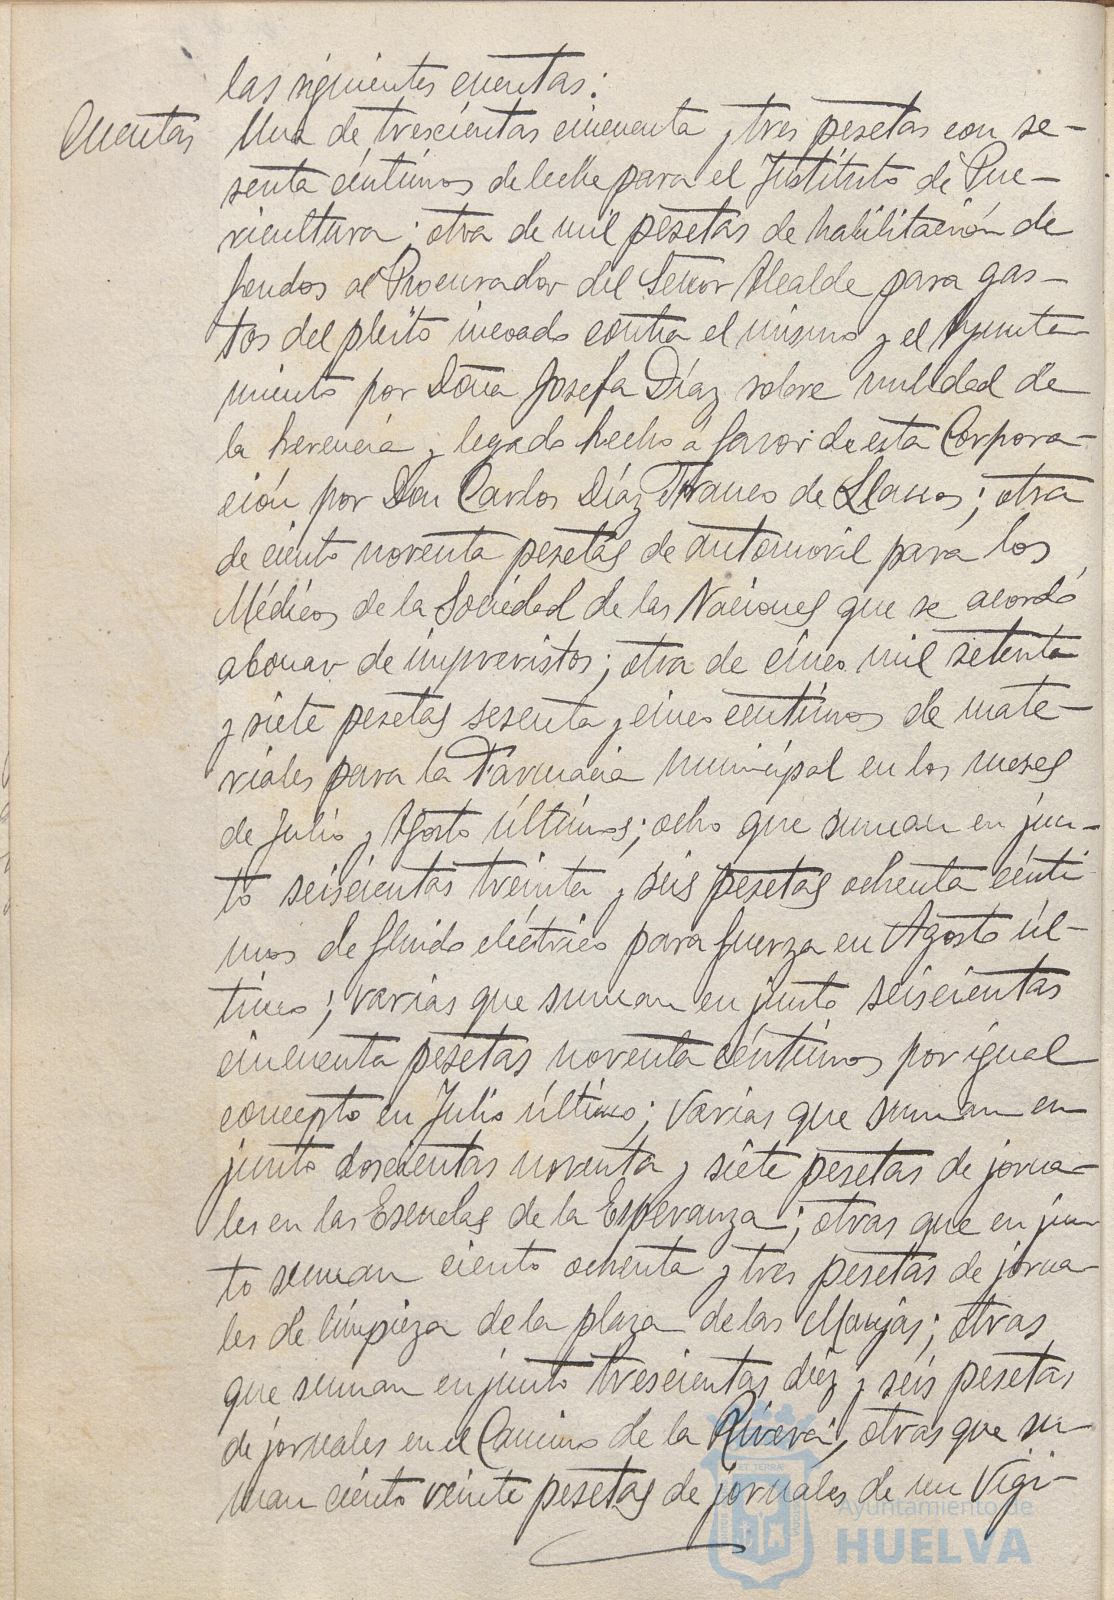 las siguientes cuentas:
Cuentas Una de trescientas cincuenta y tres pesetas con se-
senta céntimos de leche para el Instituto de Pue-
ricultura; otra de mil pesetas de habilitación de
fondos al Procurador del Señor Alcalde para gas-
tos del pleito incoado contra el mismo y el Ayunta
miento por Doña Josefa Díaz sobre nulidad de
la herencia y legado hecho a favor de esta Corpora-
ción por Don Carlos Díaz Franco de Llanos; otra
de ciento noventa pesetas de automovil para los
Médicos de la Sociedad de las Naciones que se acordó
abonar de imprevistos; otra de cinco mil setenta
y siete pesetas sesenta y cinco centimos de mate-
riales para la Farmacia municipal en los meses
de Julio y Agosto últimos; ocho que suman en jun-
to seiscientas treinta y seis pesetas ochenta cénti-
mos de fluido eléctrico para fuerza en Agosto úl-
timo; varias que suman en junto seiscientas
cincuenta pesetas noventa céntimos por igual
concepto en Julio último; varias que suman en
junto doscientas noventa y siete pesetas de jorna-
les en las Escuelas de la Esperanza; otras que en jun
to suman ciento ochenta y tres pesetas de jorna-
les de limpieza de la plaza de las Monjas; otras
que suman en junto trescientas diez y seis pesetas
de jornales en el Camino de la Rivera; otras que su-
man ciento veinte pesetas de jornales de un Vigi-
Ayuntamiento de
HUELVA